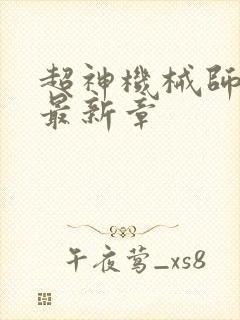 超神機械師
最新章
午夜莺_xs8